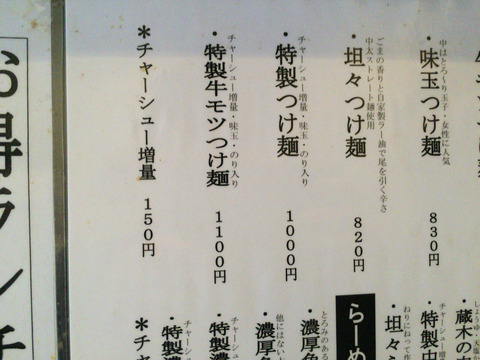 つけ麺
中はとろ〜り玉子・女性に人気
・味玉つけ麺 830円
ごまの香りと自家製ラー油で尾を引く辛さ
中太ストレート麺使用
・坦々つけ麺 820円
チャーシュー増量・味玉・のり入り
・特製つけ麺 1000円
チャーシュー増量・味玉・のり入り
・特製牛モツつけ麺 1100円
＊チャーシュー増量 150円
蔵木の
チャーシュー
・特製
・坦々
らーめ
とろみのある
・濃厚魚
他にはない
・濃厚
・特製濃
・特製濃
＊チャ
お得ラン